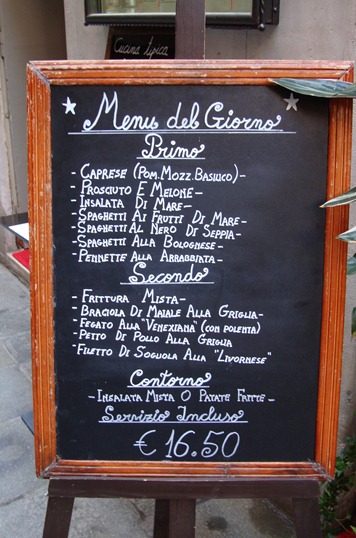 Cucina tipica
Menu del Giorno
Primo
- CAPRESE (POM. MOZZ. BASILICO) -
- PROSCIUTO E MELONE -
- INSALATA DI MARE -
- SPAGHETTI AI FRUTTI DI MARE -
- SPAGHETTI AL NERO DI SEPPIA -
- SPAGHETTI ALLA BOLOGNESE -
- PENNETTE ALLA ARRABBIATA -
Secondo
- FRITTURA MISTA -
- BRACIOLA DI MAIALE ALLA GRIGLIA -
- FEGATO ALLA "VENEXIANA" (CON POLENTA)
- PETTO DI POLLO ALLA GRIGLIA
- FILETTO DI SOGLIOLA ALLA "LIVORNESE"
Contorno
- INSALATA MISTA O PATATE FRITTE -
Servizio Incluso
€ 16.50